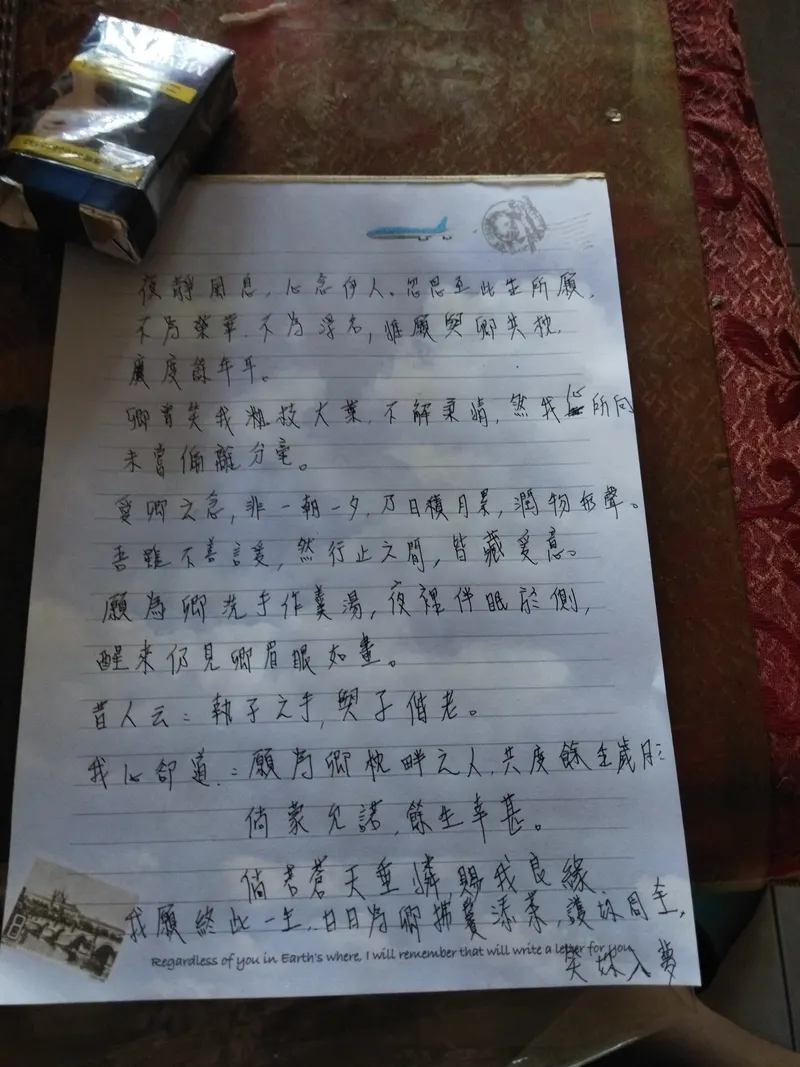 夜靜風息，心念伊人。忽思至此生所願，
不為榮華，不為浮名，惟願與卿共枕，
廣度餘年耳。
卿常笑我粗枝大葉，不解柔情，然我心所向
未嘗偏離分毫。
愛卿之念，非一朝一夕，乃日積月累，潤物無聲。
吾雖不善言愛，然行止之間，皆藏愛意。
願為卿洗手作羹湯，夜裡伴眠於側，
醒來仍見卿眉眼如畫。
昔人云：執子之手，與子偕老。
我心卻道：願為卿枕畔之人，共度餘生歲月
倘蒙允諾，餘生幸甚。
倘若蒼天垂憐，賜我良緣
我願終此一生，日日為卿拂鬢添茶，護妳周全，
笑妳入夢
Regardless of you in Earth's where, I will remember that will write a letter for you